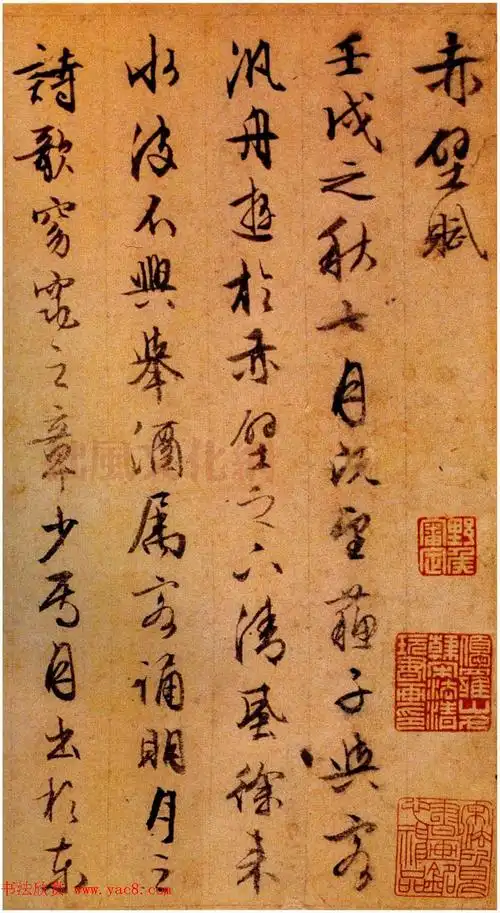 赤壁賦
壬戌之秋七月既望蘇子與客
汎舟遊於赤壁之下清風徐来
水波不興舉酒属客誦明月之
詩歌窈窕之章少焉月出於东
书法欣赏 www.yac8.com